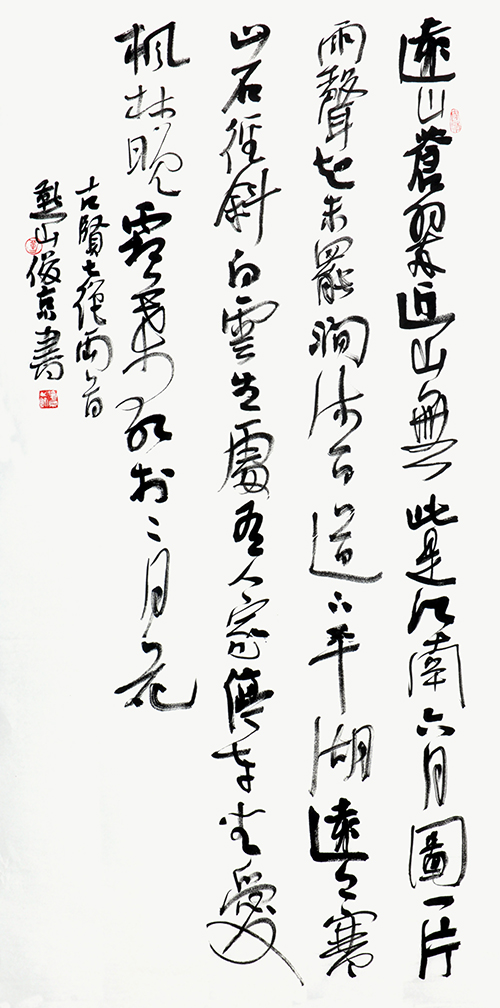 遠山蒼翠近山無此是江南六月圖一片
雨聲知未罷澗流百道下平湖遠上寒
山石徑斜白雲生處有人家停車坐愛
楓林晚霜葉紅於二月花
古賢七絕兩首
燕山俊京書